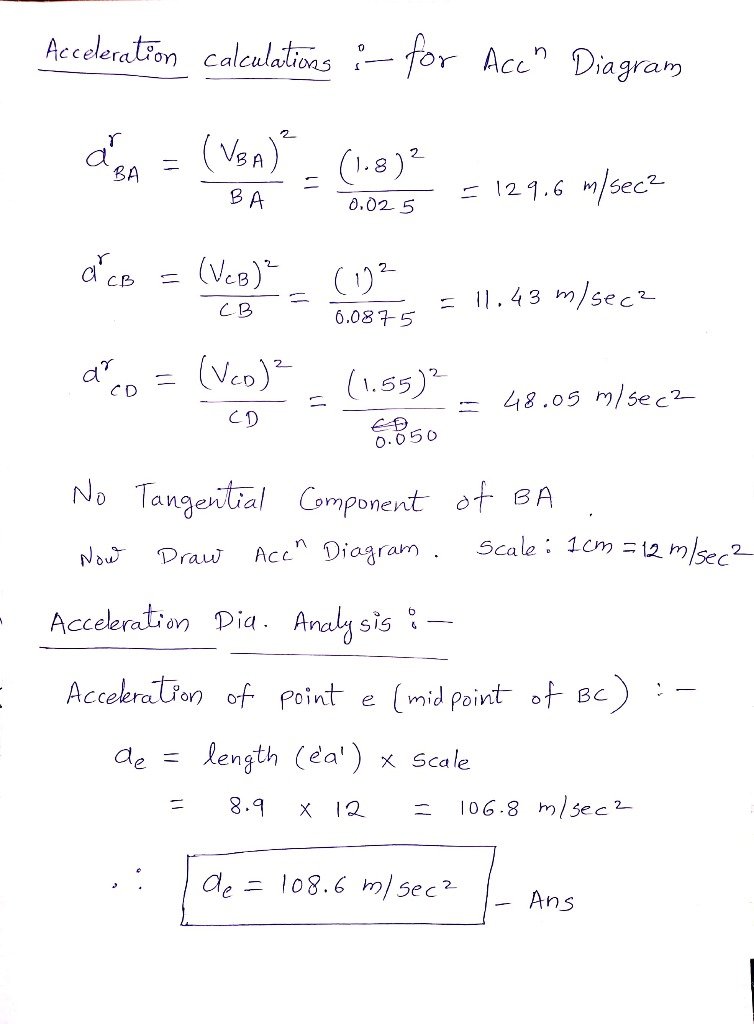 Acceleration calculations :- for Accⁿ Diagram
aʳBA = (VBA)² / BA = (1.8)² / 0.025 = 129.6 m/sec²
aʳCB = (VCB)² / CB = (1)² / 0.0875 = 11.43 m/sec²
aʳCD = (VCD)² / CD = (1.55)² / 0.050 = 48.05 m/sec²
No Tangential Component of BA .
Now Draw Accⁿ Diagram . Scale : 1cm = 12 m/sec²
Acceleration Dia. Analysis :-
Acceleration of point e (mid point of BC) :-
ae = length (e'a') x scale
= 8.9 x 12 = 106.8 m/sec²
∴ ae = 108.6 m/sec² - Ans